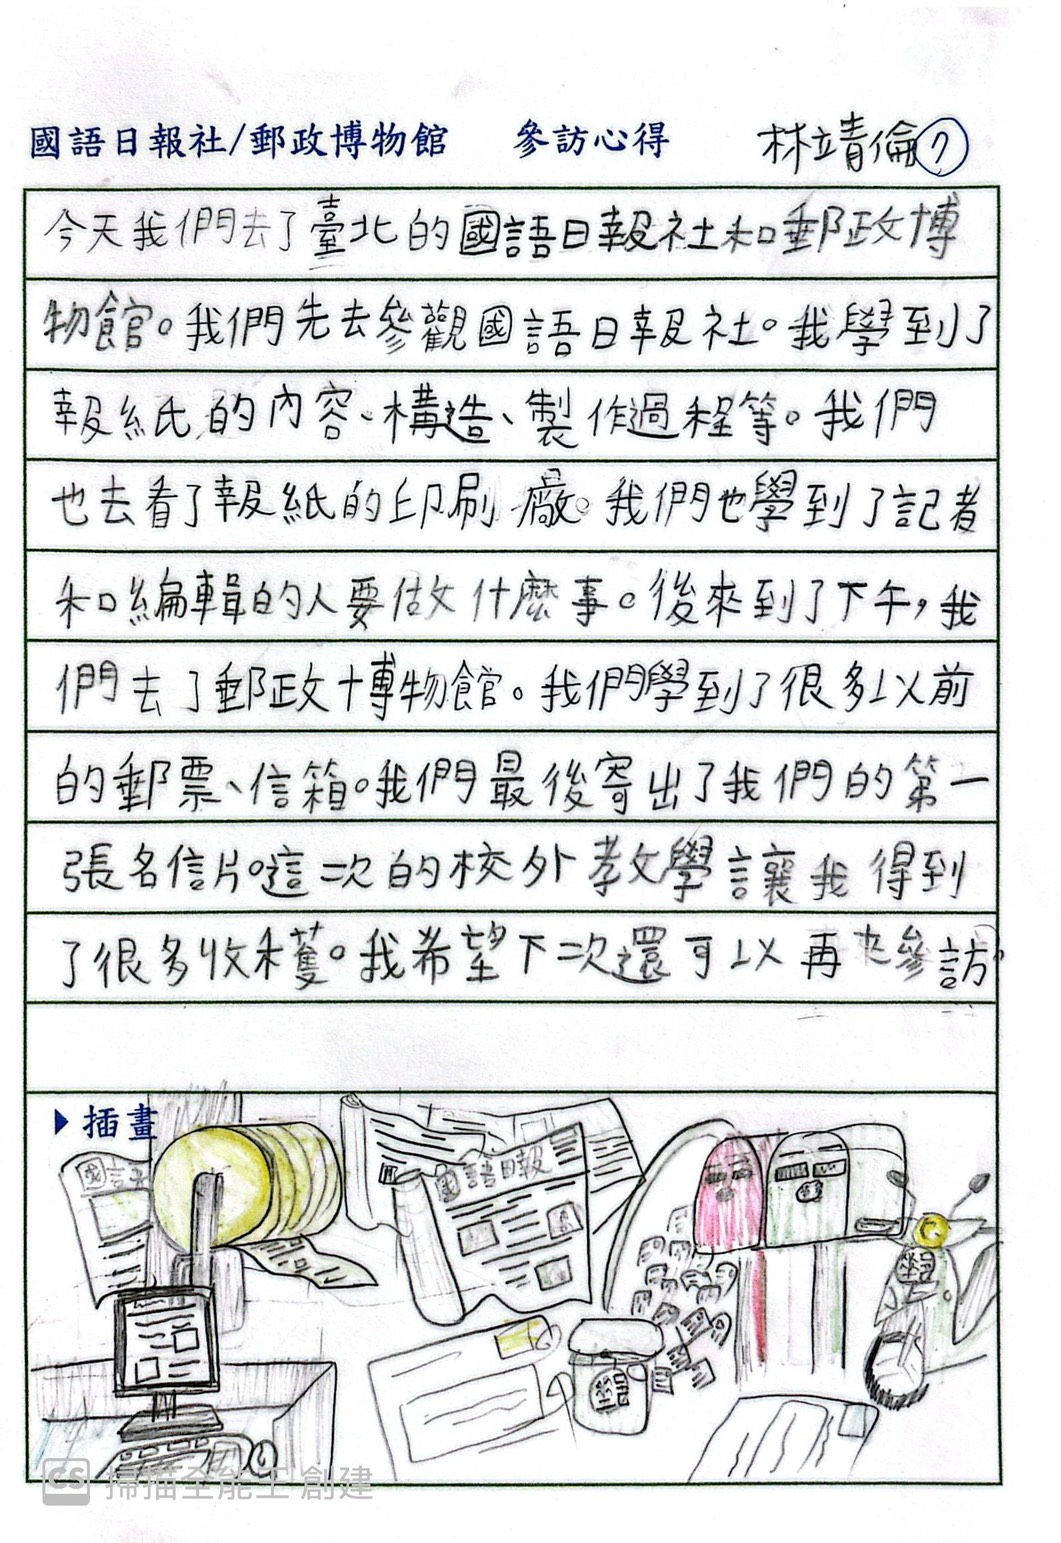 國語日報社/郵政博物館 參訪心得 林靖倫⑦
今天我們去了臺北的國語日報社和郵政博
物館。我們先去參觀國語日報社。我學到了
報紙的內容、構造、製作過程等。我們
也去看了報紙的印刷廠。我們也學到了記者
和編輯的人要做什麼事。後來到了下午,我
們去了郵政博物館。我們學到了很多以前
的郵票、信箱。我們最後寄出了我們的第一
張名信片。這一次的校外教學讓我得到
了很多收穫。我希望下次還可以再來參訪。
▶插畫
國語日報
CS 掃描全能王 創建